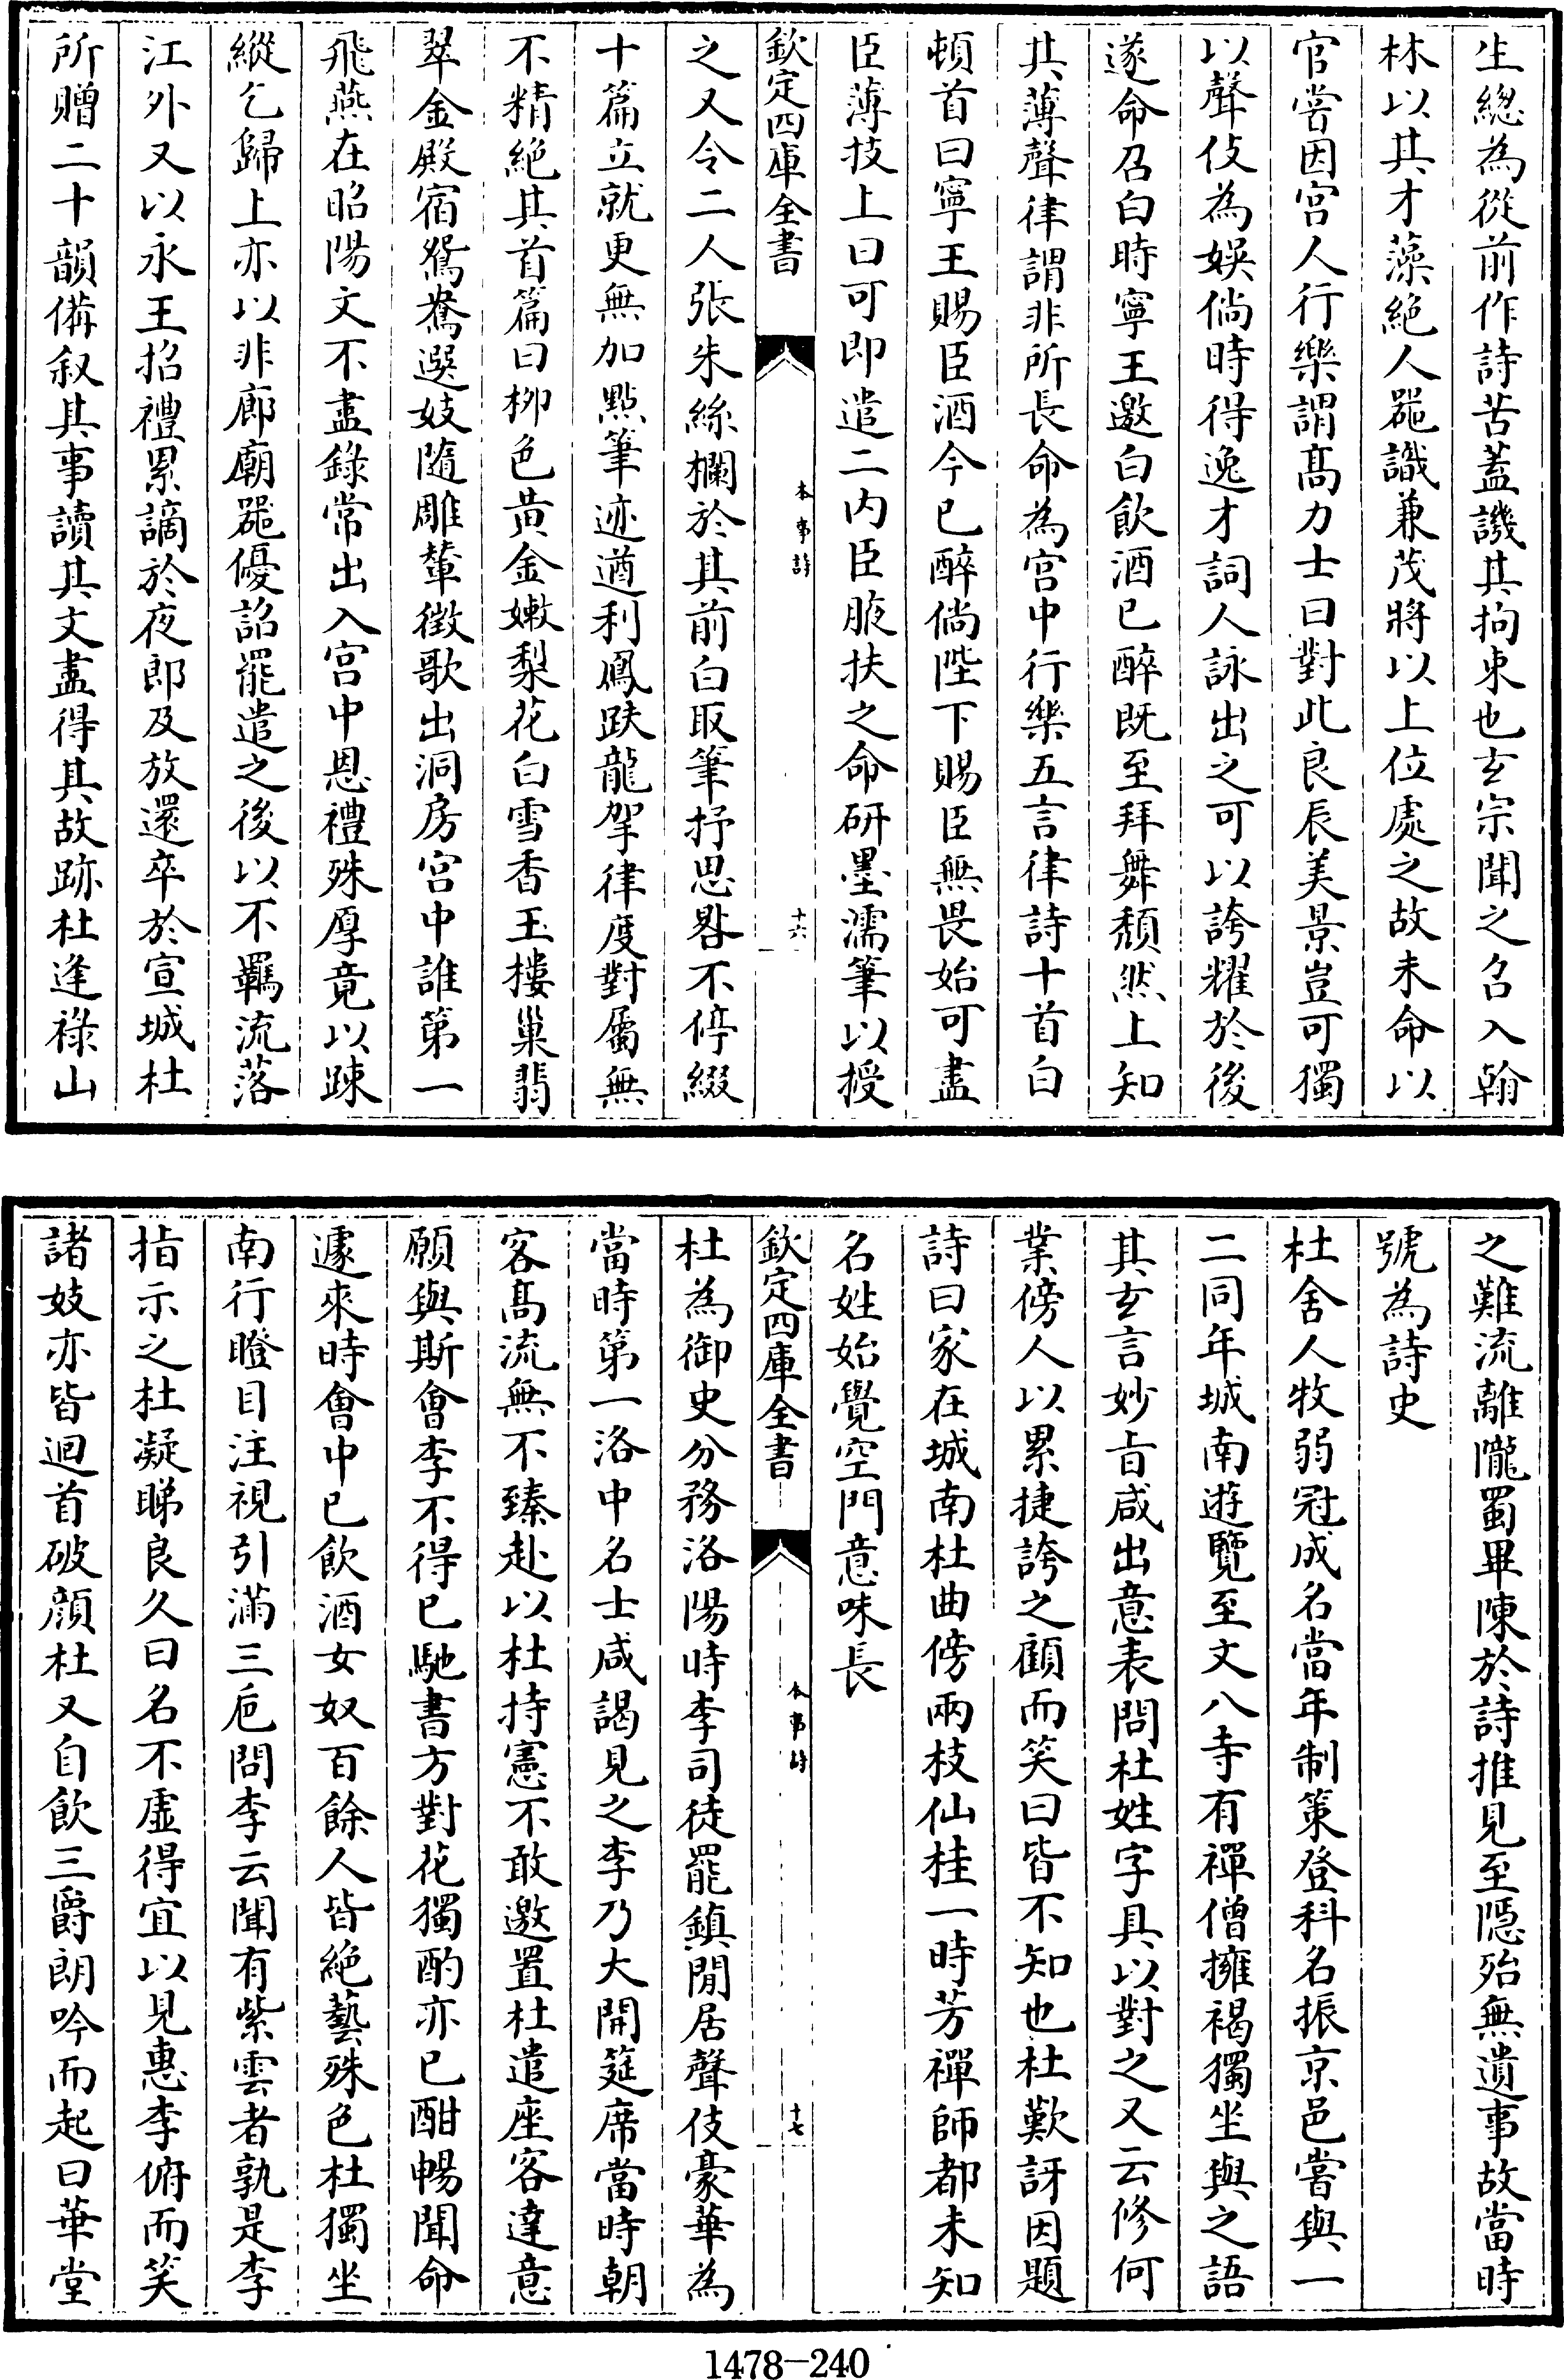 生總為從前作詩苦蓋譏其拘束也玄宗聞之召入翰
林以其才藻絕人器識兼茂將以上位處之故未命以
官嘗因宮人行樂謂髙力士曰對此良辰美景豈可獨
以聲伎為娛倘時得逸才詞人詠出之可以誇耀於後
遂命召白時寧王邀白飲酒已醉既至拜舞頹然上知
其薄聲律謂非所長命為宮中行樂五言律詩十首白
頓首曰寧王賜臣酒今已醉倘陛下賜臣無畏始可盡
臣薄技上曰可即遣二内臣腋扶之命研墨濡筆以授
欽定四庫全書
本事詩
十六
之又令二人張朱絲欄於其前白取筆抒思畧不停綴
十篇立就更無加點筆迹遒利鳳跌龍拏律度對屬無
不精絕其首篇曰栁色黄金嫩梨花白雪香玉樓巢翡
翠金殿宿鴛鴦選妓隨雕輦徵歌出洞房宫中誰第一
飛燕在昭陽文不盡錄常出入宫中恩禮殊厚竟以踈
縱乞歸上亦以非廊廟器優詔罷遣之後以不羈流落
江外又以永王招禮累謫於夜郎及放還卒於宣城杜
所贈二十韻備叙其事讀其文盡得其故跡杜逢祿山
之難流離隴蜀畢陳於詩推見至隱殆無遺事故當時
號為詩史
杜舍人牧弱冠成名當年制策登科名振京邑嘗與一
二同年城南遊覽至文八寺有禪僧擁褐獨坐與之語
其玄言妙旨咸出意表問杜姓字具以對之又云修何
業傍人以累捷誇之顧而笑曰皆不知也杜歎訝因題
詩曰家在城南杜曲傍兩枝仙桂一時芳禪師都未知
名姓始覺空門意味長
欽定四庫全書
本事詩
十七
杜為御史分務洛陽時李司徒罷鎮閒居聲伎豪華為
當時第一洛中名士咸謁見之李乃大開筵席當時朝
客髙流無不臻赴以杜持憲不敢邀置杜遣座客達意
願與斯會李不得已馳書方對花獨酌亦已酣暢聞命
遽來時會中已飲酒女奴百餘人皆絕藝殊色杜獨坐
南行瞪目注視引滿三巵問李云聞有紫雲者孰是李
指示之杜凝睇良久曰名不虛得宜以見惠李俯而笑
諸妓亦皆迴首破顔杜又自飲三爵朗吟而起曰華堂
1478-240